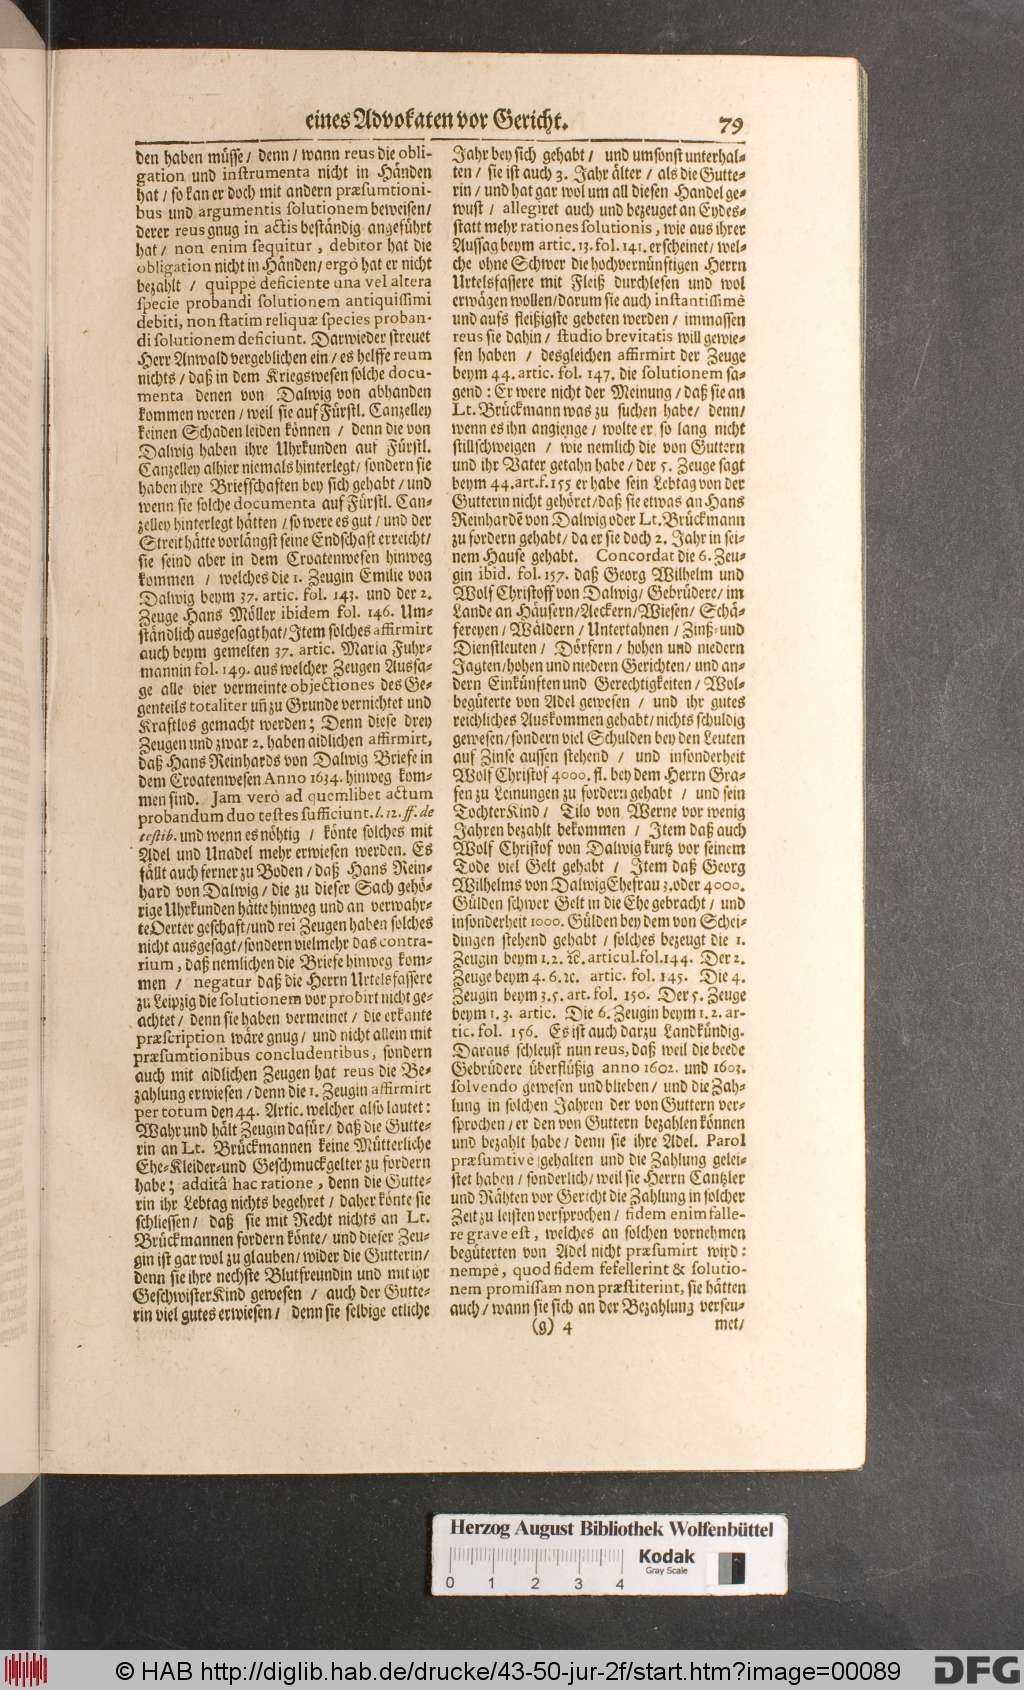 eines Advokaten vor Gericht. 79
den haben müsse/ denn/ wann reus die obli-
gation und instrumenta nicht in Händen
hat/ so kan er doch mit andern præsumtioni-
bus und argumentis solutionem beweisen/
derer reus gnug in actis beständig angeführt
hat/ non enim sequitur, debitor hat die
obligation nicht in Händen/ ergò hat er nicht
bezahlt/ quippè deficiente una vel altera
specie probandi solutionem antiquissimi
debiti, non statim reliquæ species proban-
di solutionem deficiunt. Darwieder streuet
Herr Anwald vergeblichen ein/ es helffe reum
nichts/ daß in dem Kriegswesen solche docu-
menta denen von Dalwig von abhanden
kommen weren/ weil sie auf Fürstl. Canzelley
keinen Schaden leiden können/ denn die von
Dalwig haben ihre Uhrkunden auf Fürstl.
Canzelley alhier niemals hinterlegt/ sondern sie
haben ihre Briefschaften bey sich gehabt/ und
wenn sie solche documenta auf Fürstl. Can-
zelley hinterlegt hätten/ so were es gut/ und der
Streit hätte vorlängst seine Endschaft erreicht/
sie seind aber in dem Croatenwesen hinweg
kommen/ welches die 1. Zeugin Emilie von
Dalwig beym 37. artic. fol. 143. und der 2.
Zeuge Hans Möller ibidem fol. 146. Um-
ständlich ausgesagt hat/ Item solches affirmirt
auch beym gemelten 37. artic. Maria Fuhr-
mannin fol. 149. aus welcher Zeugen Aussa-
ge alle vier vermeinte objectiones des Ge-
genteils totaliter uñ zu Grunde vernichtet und
Kraftlos gemacht werden; Denn diese drey
Zeugen und zwar 2. haben aidlichen affirmirt,
daß Hans Reinhards von Dalwig Briefe in
dem Croatenwesen Anno 1634. hinweg kom-
men sind. Jam verò ad quemlibet actum
probandum duo testes sufficiunt. l. 12. ff. de
testib. und wenn es nöhtig/ könte solches mit
Adel und Unadel mehr erwiesen werden. Es
fällt auch ferner zu Boden/ daß Hans Rein-
hard von Dalwig/ die zu dieser Sach gehö-
rige Uhrkunden hätte hinweg und an verwahr-
te Oerter geschaft/ und rei Zeugen haben solches
nicht ausgesagt/ sondern vielmehr das contra-
rium, daß nemlichen die Briefe hinweg kom-
men/ negatur daß die Herrn Urtelsfassere
zu Leipzig die solutionem vor probirt nicht ge-
achtet/ denn sie haben vermeinet/ die erkante
præscription wäre gnug/ und nicht allein mit
præsumtionibus concludentibus, sondern
auch mit aidlichen Zeugen hat reus die Be-
zahlung erwiesen/ denn die 1. Zeugin affirmirt
per totum den 44. Artic. welcher also lautet:
Wahr und hält Zeugin dafür/ daß die Gutte-
rin an Lt. Brückmannen keine Mütterliche
Ehe-Kleider- und Geschmuckgelter zu fordern
habe; additâ hac ratione, denn die Gutte-
rin ihr Lebtag nichts begehret/ daher könte sie
schliessen/ daß sie mit Recht nichts an Lt.
Brückmannen fordern könte/ und dieser Zeu-
gin ist gar wol zu glauben/ wider die Gutterin/
denn sie ihre nechste Blutfreundin und mit ihr
Geschwister Kind gewesen/ auch der Gutte-
rin viel gutes erwiesen/ denn sie selbige etliche
Jahr bey sich gehabt/ und umsonst unterhal-
ten/ sie ist auch 3. Jahr älter/ als die Gutte-
rin/ und hat gar wol um all diesen Handel ge-
wust/ allegiret auch und bezeuget an Eydes-
statt mehr rationes solutionis, wie aus ihrer
Aussag beym artic. 13. fol. 141. erscheinet/ wel-
che ohne Schwer die hochvernünftigen Herrn
Urtelsfassere mit Fleiß durchlesen und wol
erwägen wollen/ darum sie auch instantissimè
und aufs fleißigste gebeten werden/ immassen
reus sie dahin/ studio brevitatis will gewie-
sen haben/ desgleichen affirmirt der Zeuge
beym 44. artic. fol. 147. die solutionem sa-
gend: Er were nicht der Meinung/ daß sie an
Lt. Brückmann was zu suchen habe/ denn/
wenn es ihn angienge/ wolte er so lang nicht
stillschweigen/ wie nemlich die von Guttern
und ihr Vater getahn habe/ der 5. Zeuge sagt
beym 44. art. f. 155 er habe sein Lebtag von der
Gutterin nicht gehöret/ daß sie etwas an Hans
Reinhardẽ von Dalwig oder Lt. Brückmann
zu fordern gehabt/ da er sie doch 2. Jahr in sei-
nem Hause gehabt. Concordat die 6. Zeu-
gin ibid. fol. 157. daß Georg Wilhelm und
Wolf Christoff von Dalwig/ Gebrüdere/ im
Lande an Häusern/ Aeckern/ Wiesen/ Schä-
fereyen/ Wäldern/ Untertahnen/ Zinß- und
Dienstleuten/ Dörfern/ hohen und niedern
Jagten/ hohen und niedern Gerichten/ und an-
dern Einkünften und Gerechtigkeiten/ Wol-
begüterte von Adel gewesen/ und ihr gutes
reichliches Auskommen gehabt/ nichts schuldig
gewesen/ sondern viel Schulden bey den Leuten
auf Zinse aussen stehend/ und insonderheit
Wolf Christof 4000. fl. bey dem Herrn Gra-
fen zu Leinungen zu fordern gehabt/ und sein
Tochter Kind/ Tilo von Werne vor wenig
Jahren bezahlt bekommen/ Item daß auch
Wolf Christof von Dalwig kurtz vor seinem
Tode viel Gelt gehabt/ Item daß Georg
Wilhelms von Dalwig Ehefrau 3. oder 4000.
Gülden schwer Gelt in die Ehe gebracht/ und
insonderheit 1000. Gülden bey dem von Schei-
dingen stehend gehabt/ solches bezeugt die 1.
Zeugin beym 1. 2. ꝛc. articul. fol. 144. Der 2.
Zeuge beym 4. 6. ꝛc. artic. fol. 145. Die 4.
Zeugin beym 3. 5. art. fol. 150. Der 5. Zeuge
beym 1. 3. artic. Die 6. Zeugin beym 1. 2. ar-
tic. fol. 156. Es ist auch darzu Landkündig.
Daraus schleust nun reus, daß weil die beede
Gebrüdere überflüßig anno 1602. und 1603.
solvendo gewesen und blieben/ und die Zah-
lung in solchen Jahren der von Guttern ver-
sprochen/ er den von Guttern bezahlen können
und bezahlt habe/ denn sie ihre Adel. Parol
præsumtivè gehalten und die Zahlung gelei-
stet haben/ sonderlich/ weil sie Herrn Cantzler
und Rähten vor Gericht die Zahlung in solcher
Zeit zu leisten versprochen/ fidem enim falle-
re grave est, welches an solchen vornehmen
begüterten von Adel nicht præsumirt wird:
nempè, quod fidem fefellerint & solutio-
nem promissam non præstiterint, sie hätten
auch/ wann sie sich an der Bezahlung verseu-
(g) 4 met/
Herzog August Bibliothek Wolfenbüttel
Kodak
Gray Scale
0 1 2 3 4
© HAB http://diglib.hab.de/drucke/43-50-jur-2f/start.htm?image=00089
DFG